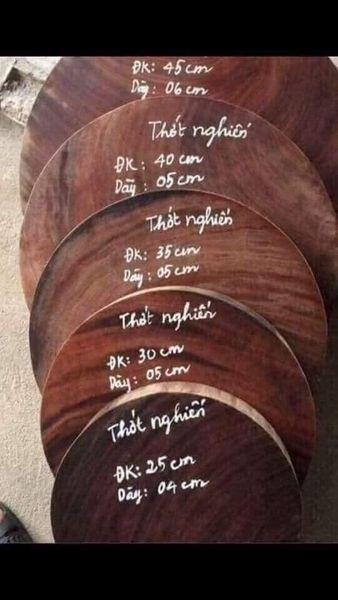 ĐK: 45 cm
Dầy: 06 cm
Thớt nghiến
ĐK: 40 cm
Dầy: 05 cm
Thớt nghiến
ĐK: 35 cm
Dầy: 05 cm
Thớt nghiến
ĐK: 30 cm
Dầy: 05 cm
Thớt nghiến
ĐK: 25 cm
Dầy: 04 cm